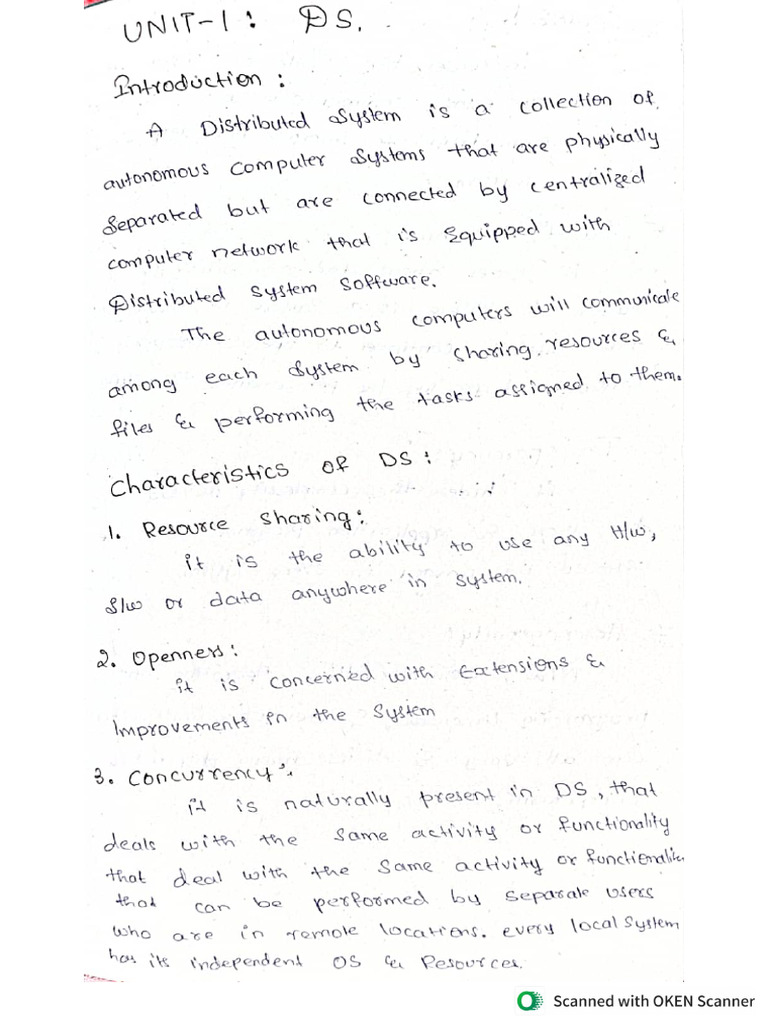 UNIT-1: DS.
Introduction:
A Distributed System is a collection of
autonomous computer Systems that are physically
Separated but are connected by centralized
computer network that is Equipped with
Distributed System Software.
The autonomous computers will communicate
among each System by Sharing resources &
files & performing the tasks assigned to them.
Characteristics of DS:
1. Resource Sharing:
it is the ability to use any H/w,
S/w or data anywhere in System.
2. Openness:
it is concerned with Extensions &
Improvements in the System
3. Concurrency:
it is naturally present in DS, that
deals with the Same activity or functionality
that deal with the Same activity or functionality
that can be performed by Separate users
who are in remote locations. every local System
has its independent OS & Resources.
Scanned with OKEN Scanner